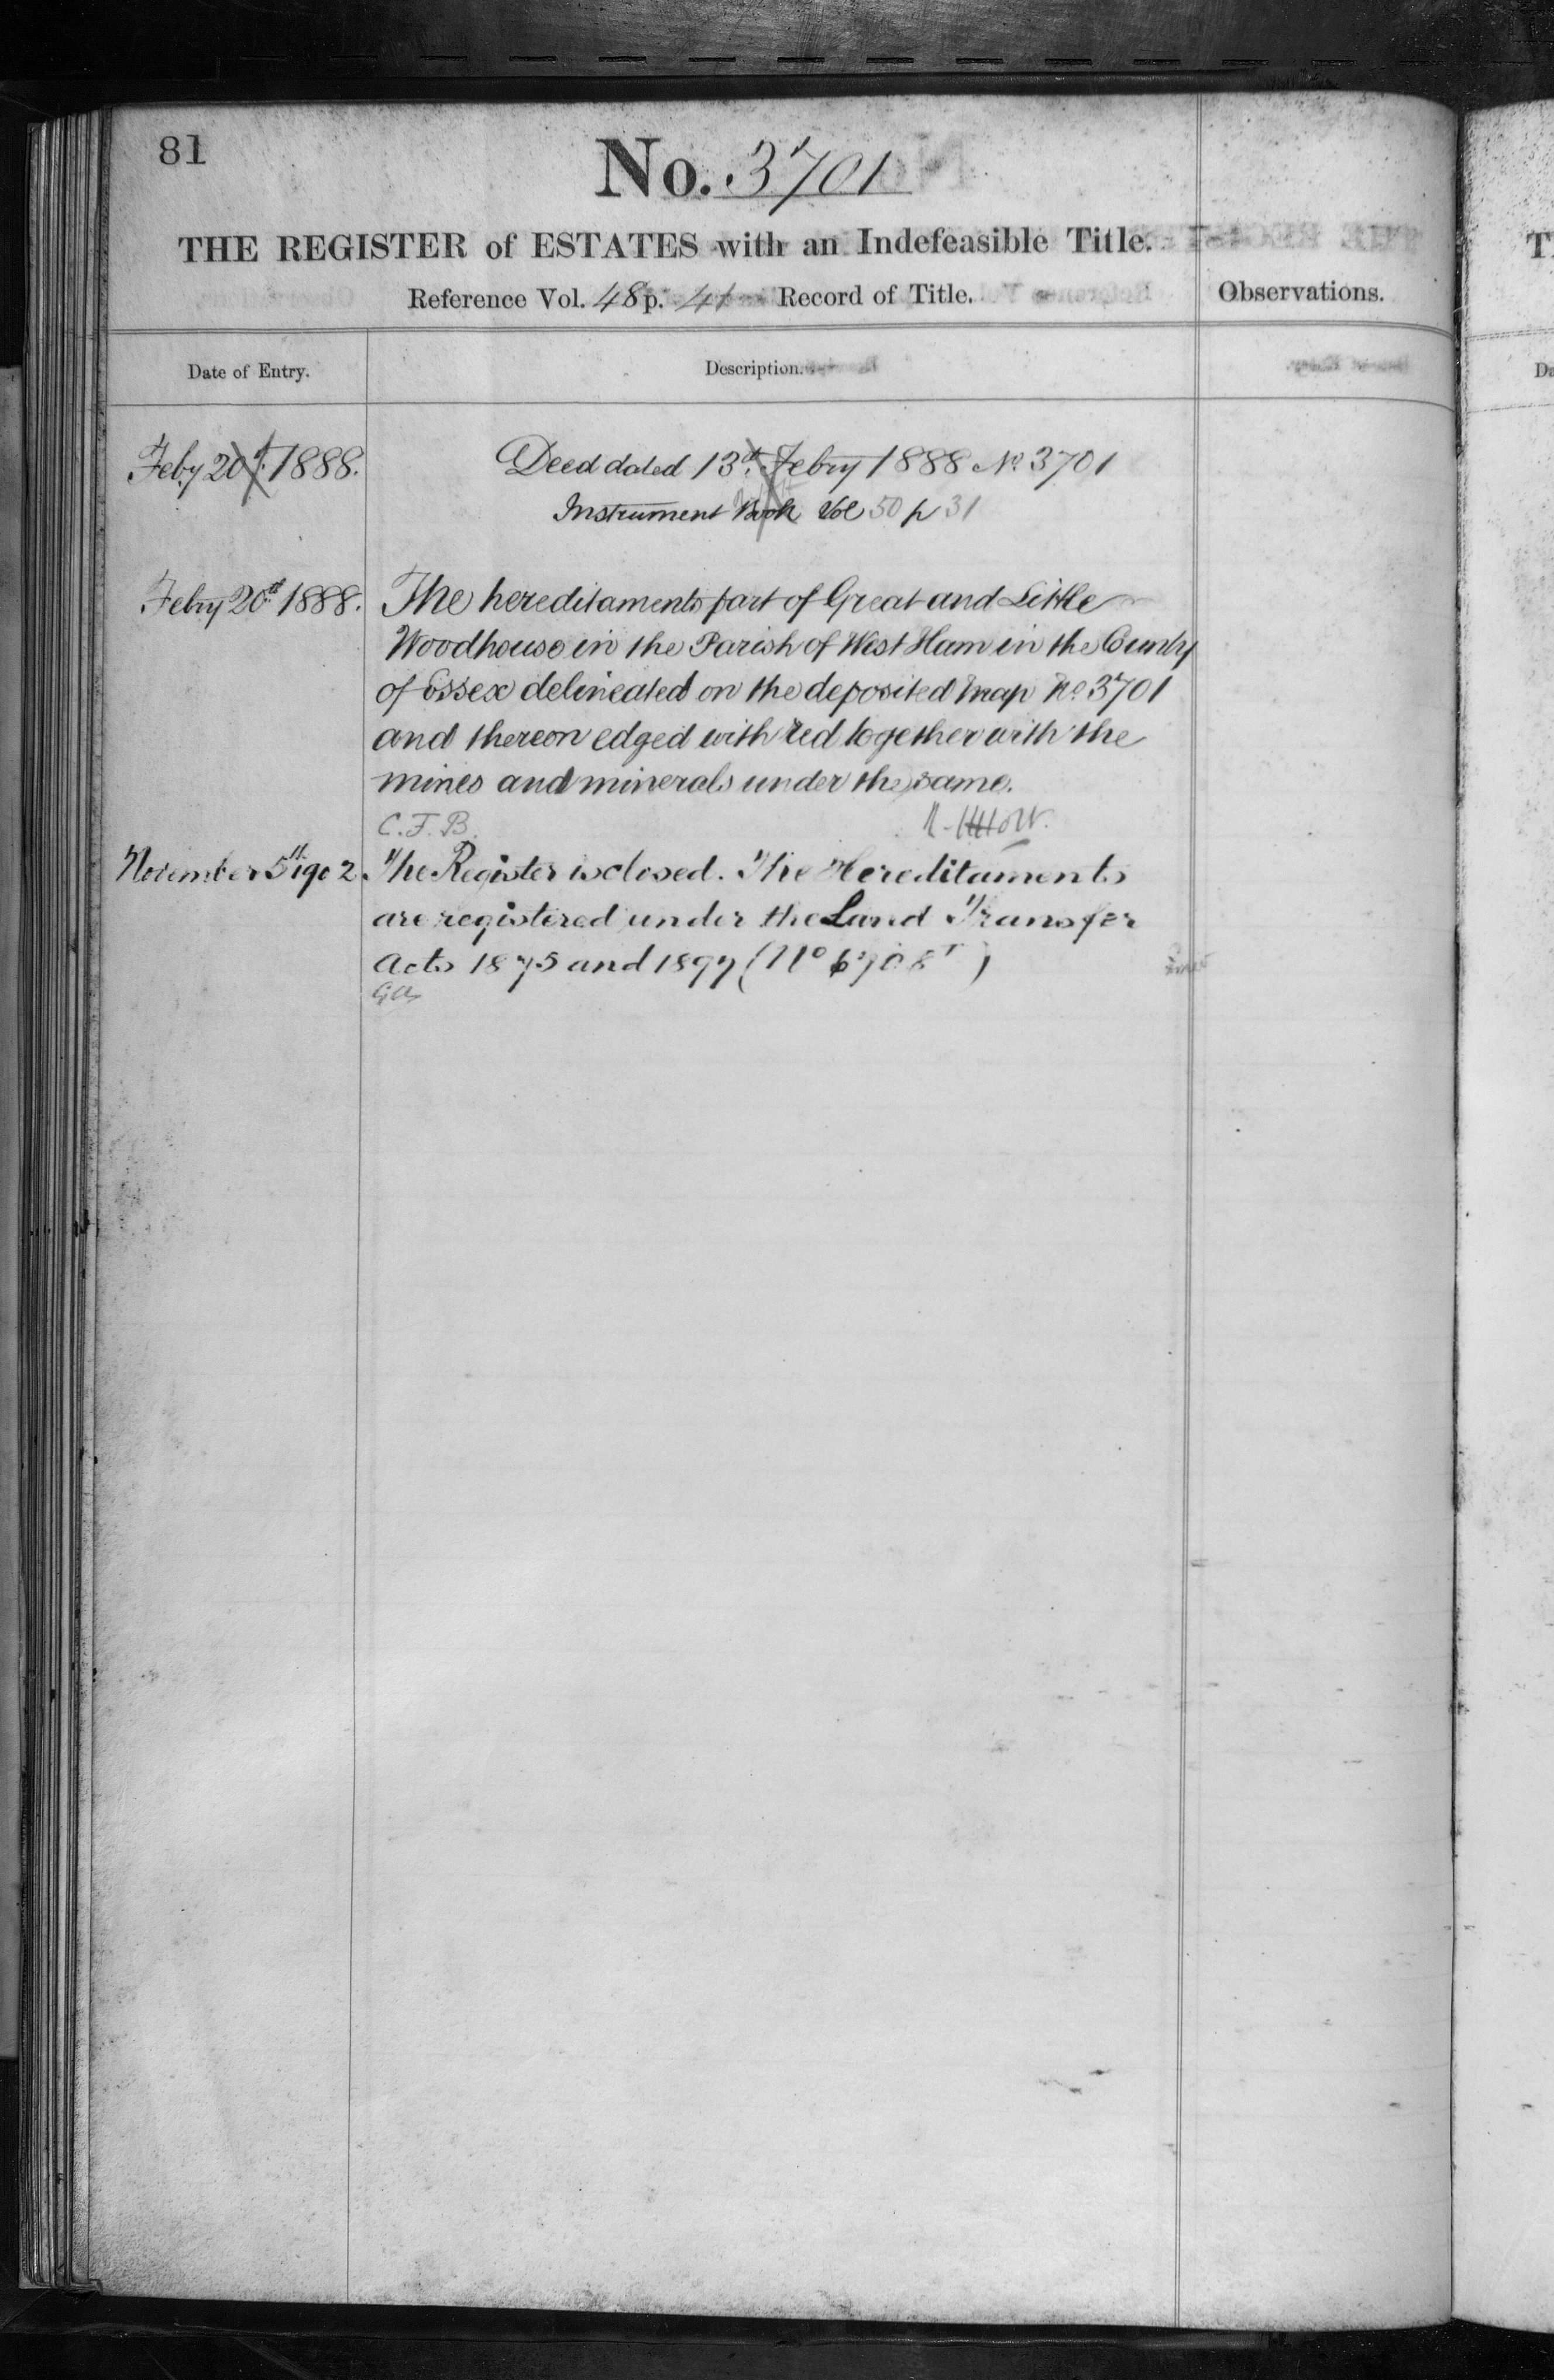 81
No. 3701
THE REGISTER of ESTATES with an Indefeasible Title.
Reference Vol. 48 p. 41 Record of Title.
Observations.
Date of Entry.
Description.
Feby 20th 1888.
Deed dated 13th Febry 1888 No 3701
Instrument Book Vol 50 p 31
Febry 20th 1888.
The hereditaments part of Great and Little
Woodhouse in the Parish of West Ham in the County
of Essex delineated on the deposited map No 3701
and thereon edged with red together with the
mines and minerals under the same.
C.F.B.
November 5th 1902
The Register is closed. The Hereditaments
are registered under the Land Transfer
Acts 1875 and 1897 (No 6708